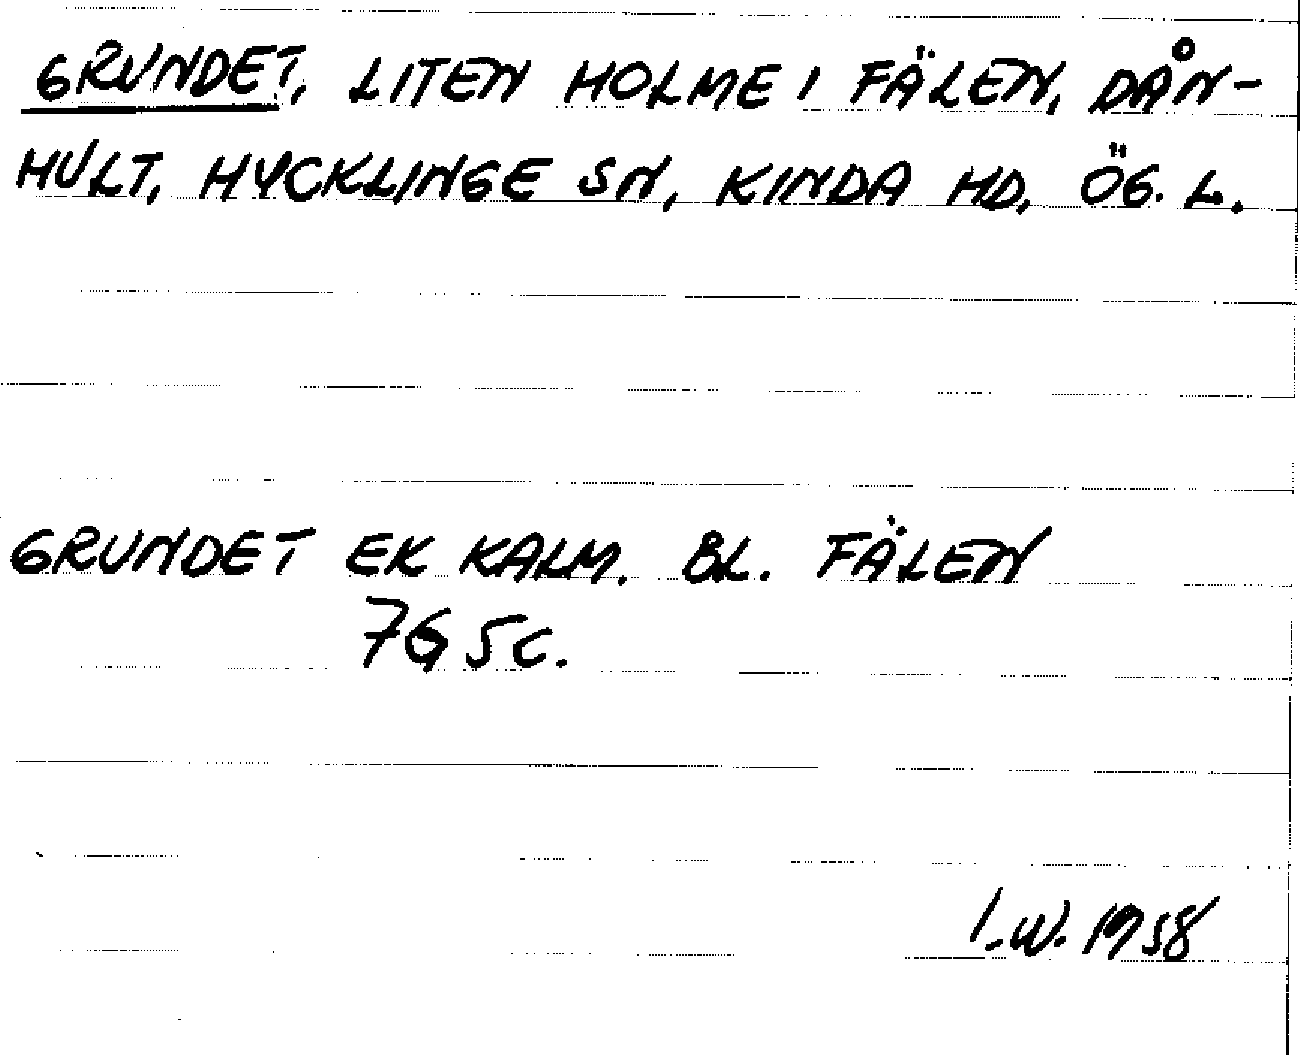 GRUNDET, LITEN HOLME I FÄLEN, DÅN-
HULT, HYCKLINGE SN, KINDA HD, ÖG. L.
GRUNDET EK KALM. BL. FÄLEN
7G 5c.
I.W. 1958